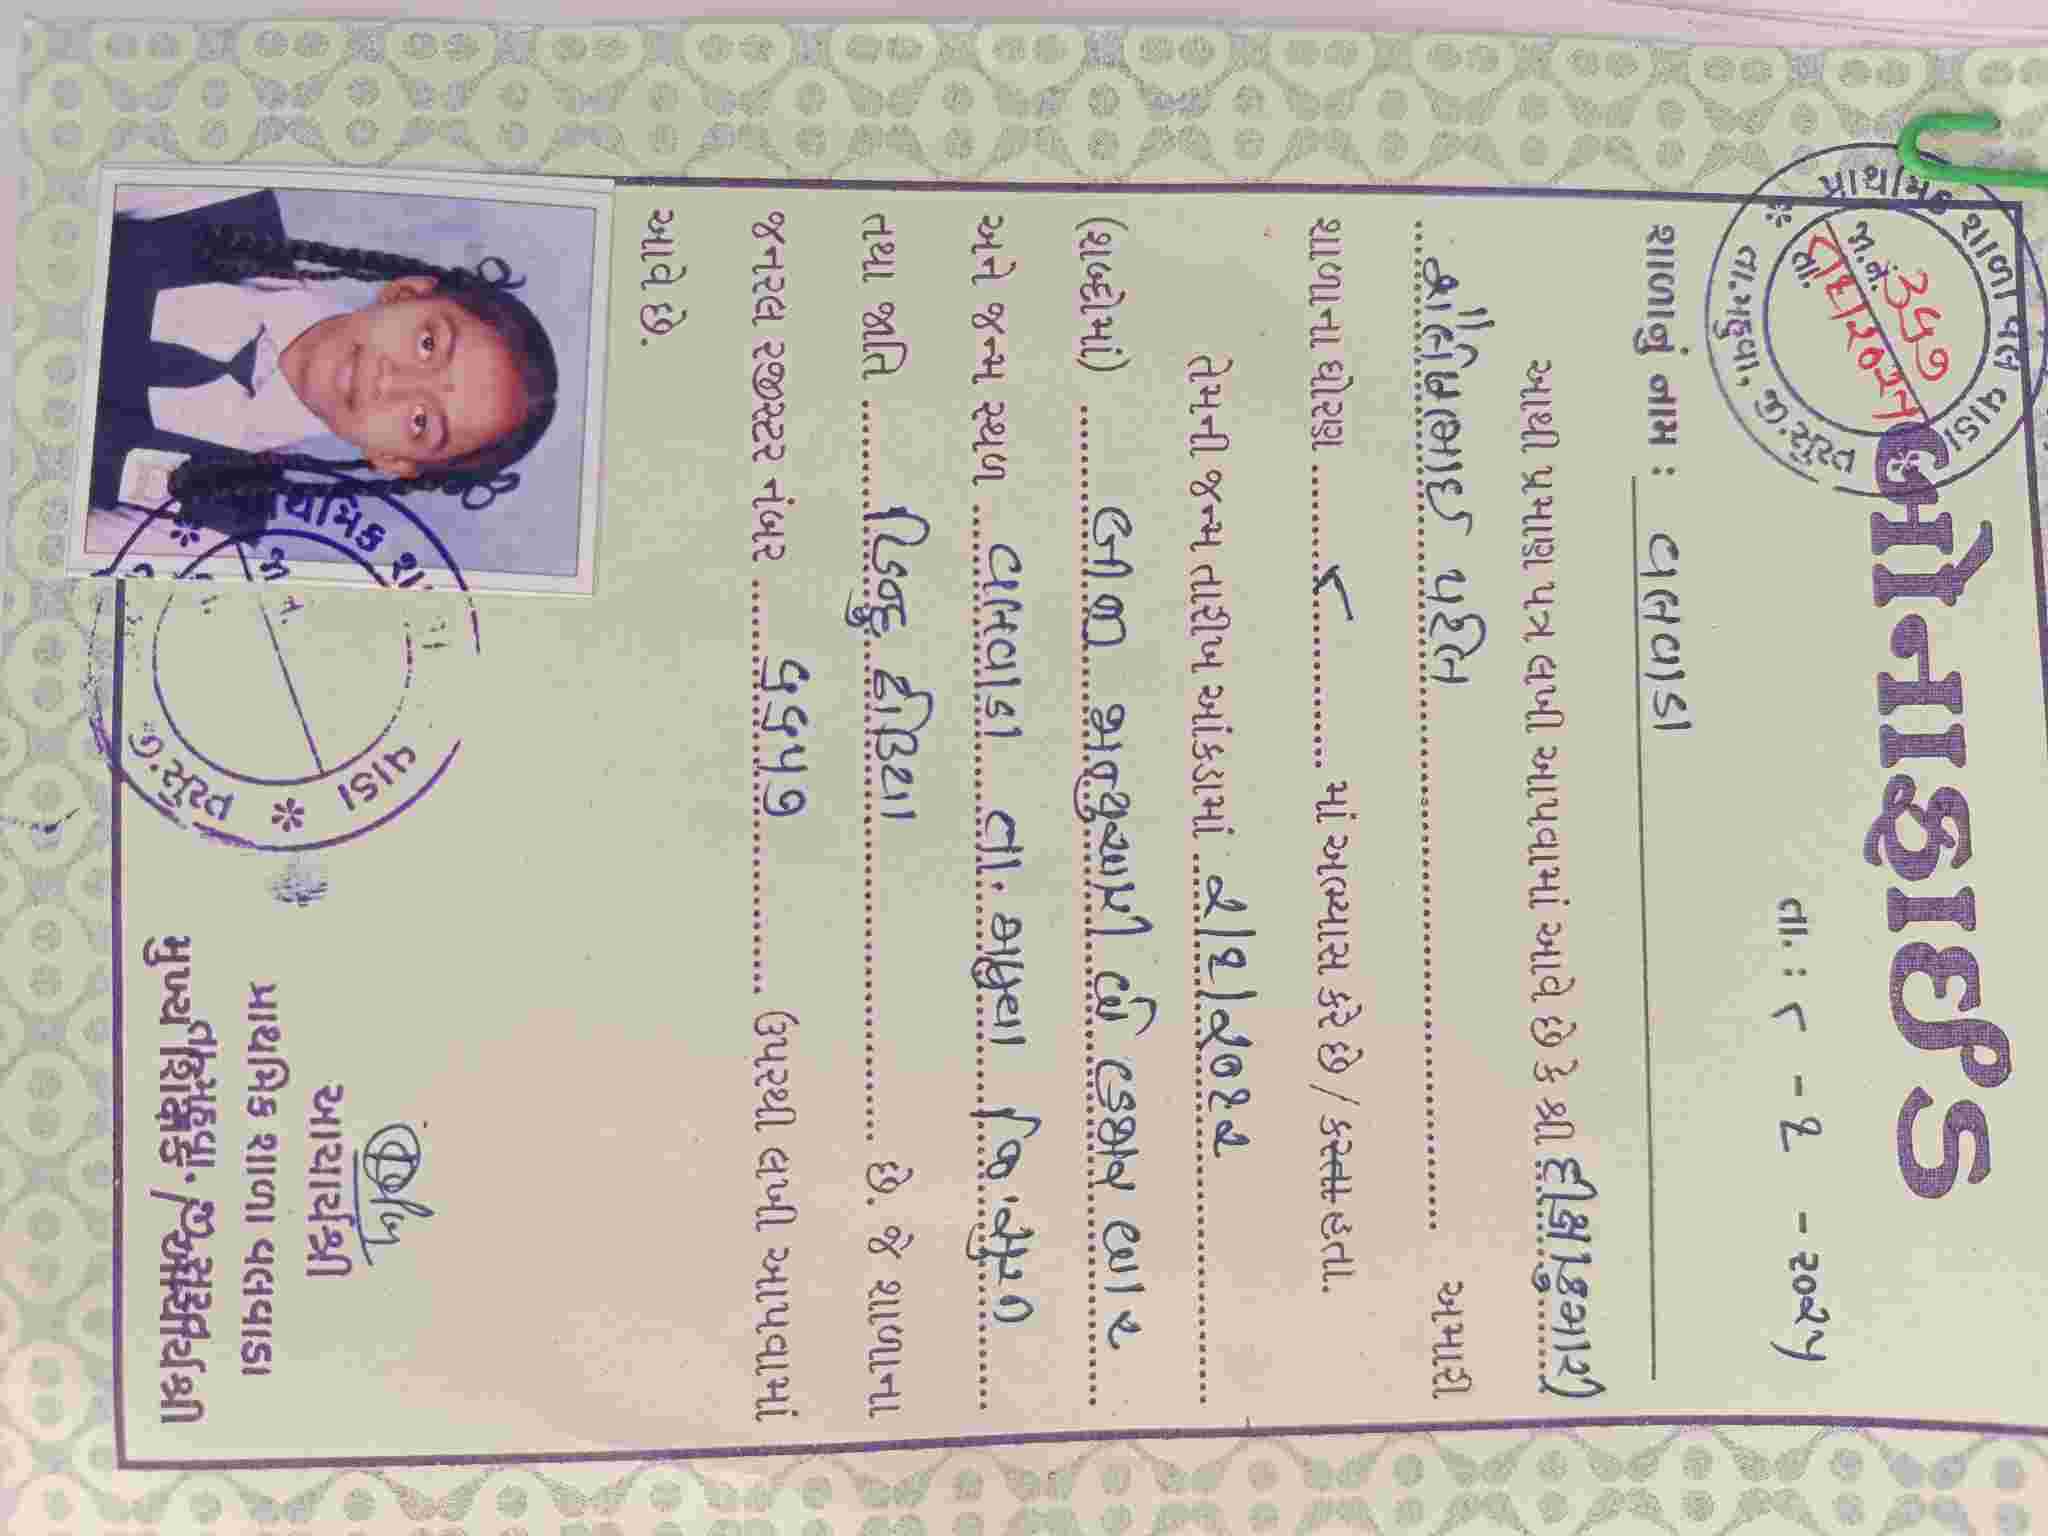 બોનાફાઈડ
પ્રાથમિક શાળા વલવાડા
તા.મહુવા, જી.સુરત
જા.નં. 357
તા. ૮/૬/૨૦૨૫
તા.: ૮ - ૬ - ૨૦૨૫
શાળાનું નામ : વલવાડા
આથી પ્રમાણ પત્ર લખી આપવામાં આવે છે કે શ્રી દીક્ષાકુમારી
પટેલ અમારી
શાળાના ધોરણ ૮ માં અભ્યાસ કરે છે / કરતા હતા.
તેમની જન્મ તારીખ આંકડામાં ૨/૬/૨૦૧૨
(શબ્દોમાં) બીજી જાન્યુઆરી બે હજાર બાર
અને જન્મ સ્થળ વલવાડા તા. મહુવા જિ. સુરત
તથા જાતિ હિન્દુ ઢોડિયા છે. જે શાળાના
જનરલ રજીસ્ટર નંબર ૬૬૫૭ ઉપરથી લખી આપવામાં
આવે છે.
પ્રાથમિક શા
વાડા
જી.સુરત
આચાર્યશ્રી
પ્રાથમિક શાળા વલવાડા
તા.મહુવા. જી.સુરત
મુખ્ય શિક્ષક / આચાર્યશ્રી